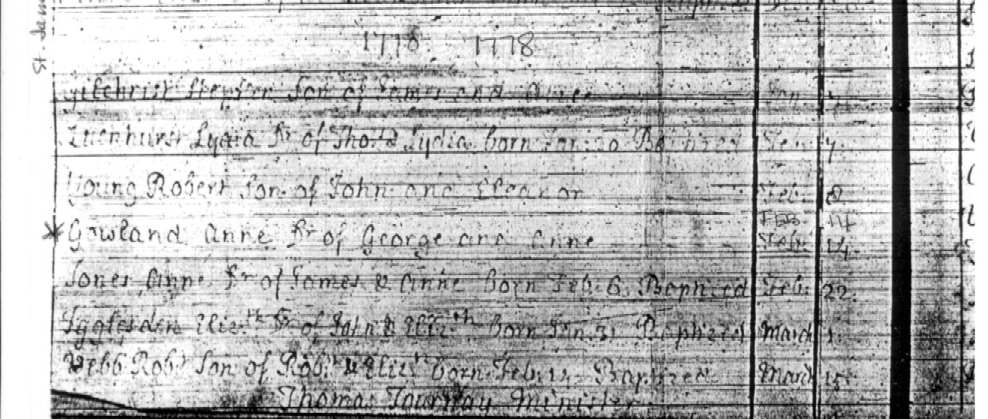 1778 1778
Gilchrist Stephen Son of James and Jan
Luckhurst Lydia Dr of Thos & Lydia born Jan: 20 Baptized Feb: 7
Young Robert Son of John and Eleanor Feb: 8
Feb 14
Gowland Anne Dr of George and Anne Feb: 14
Jones Anne Dr of James & Anne born Feb: 6 Baptized Feb: 22
Iggulsden Eliz:th Dr of John & Eliz:th born Jan. 31 Baptized March 1
Webb Robt Son of Rob: & Eliz:th born Feb: Baptized March 15
Thomas Minister